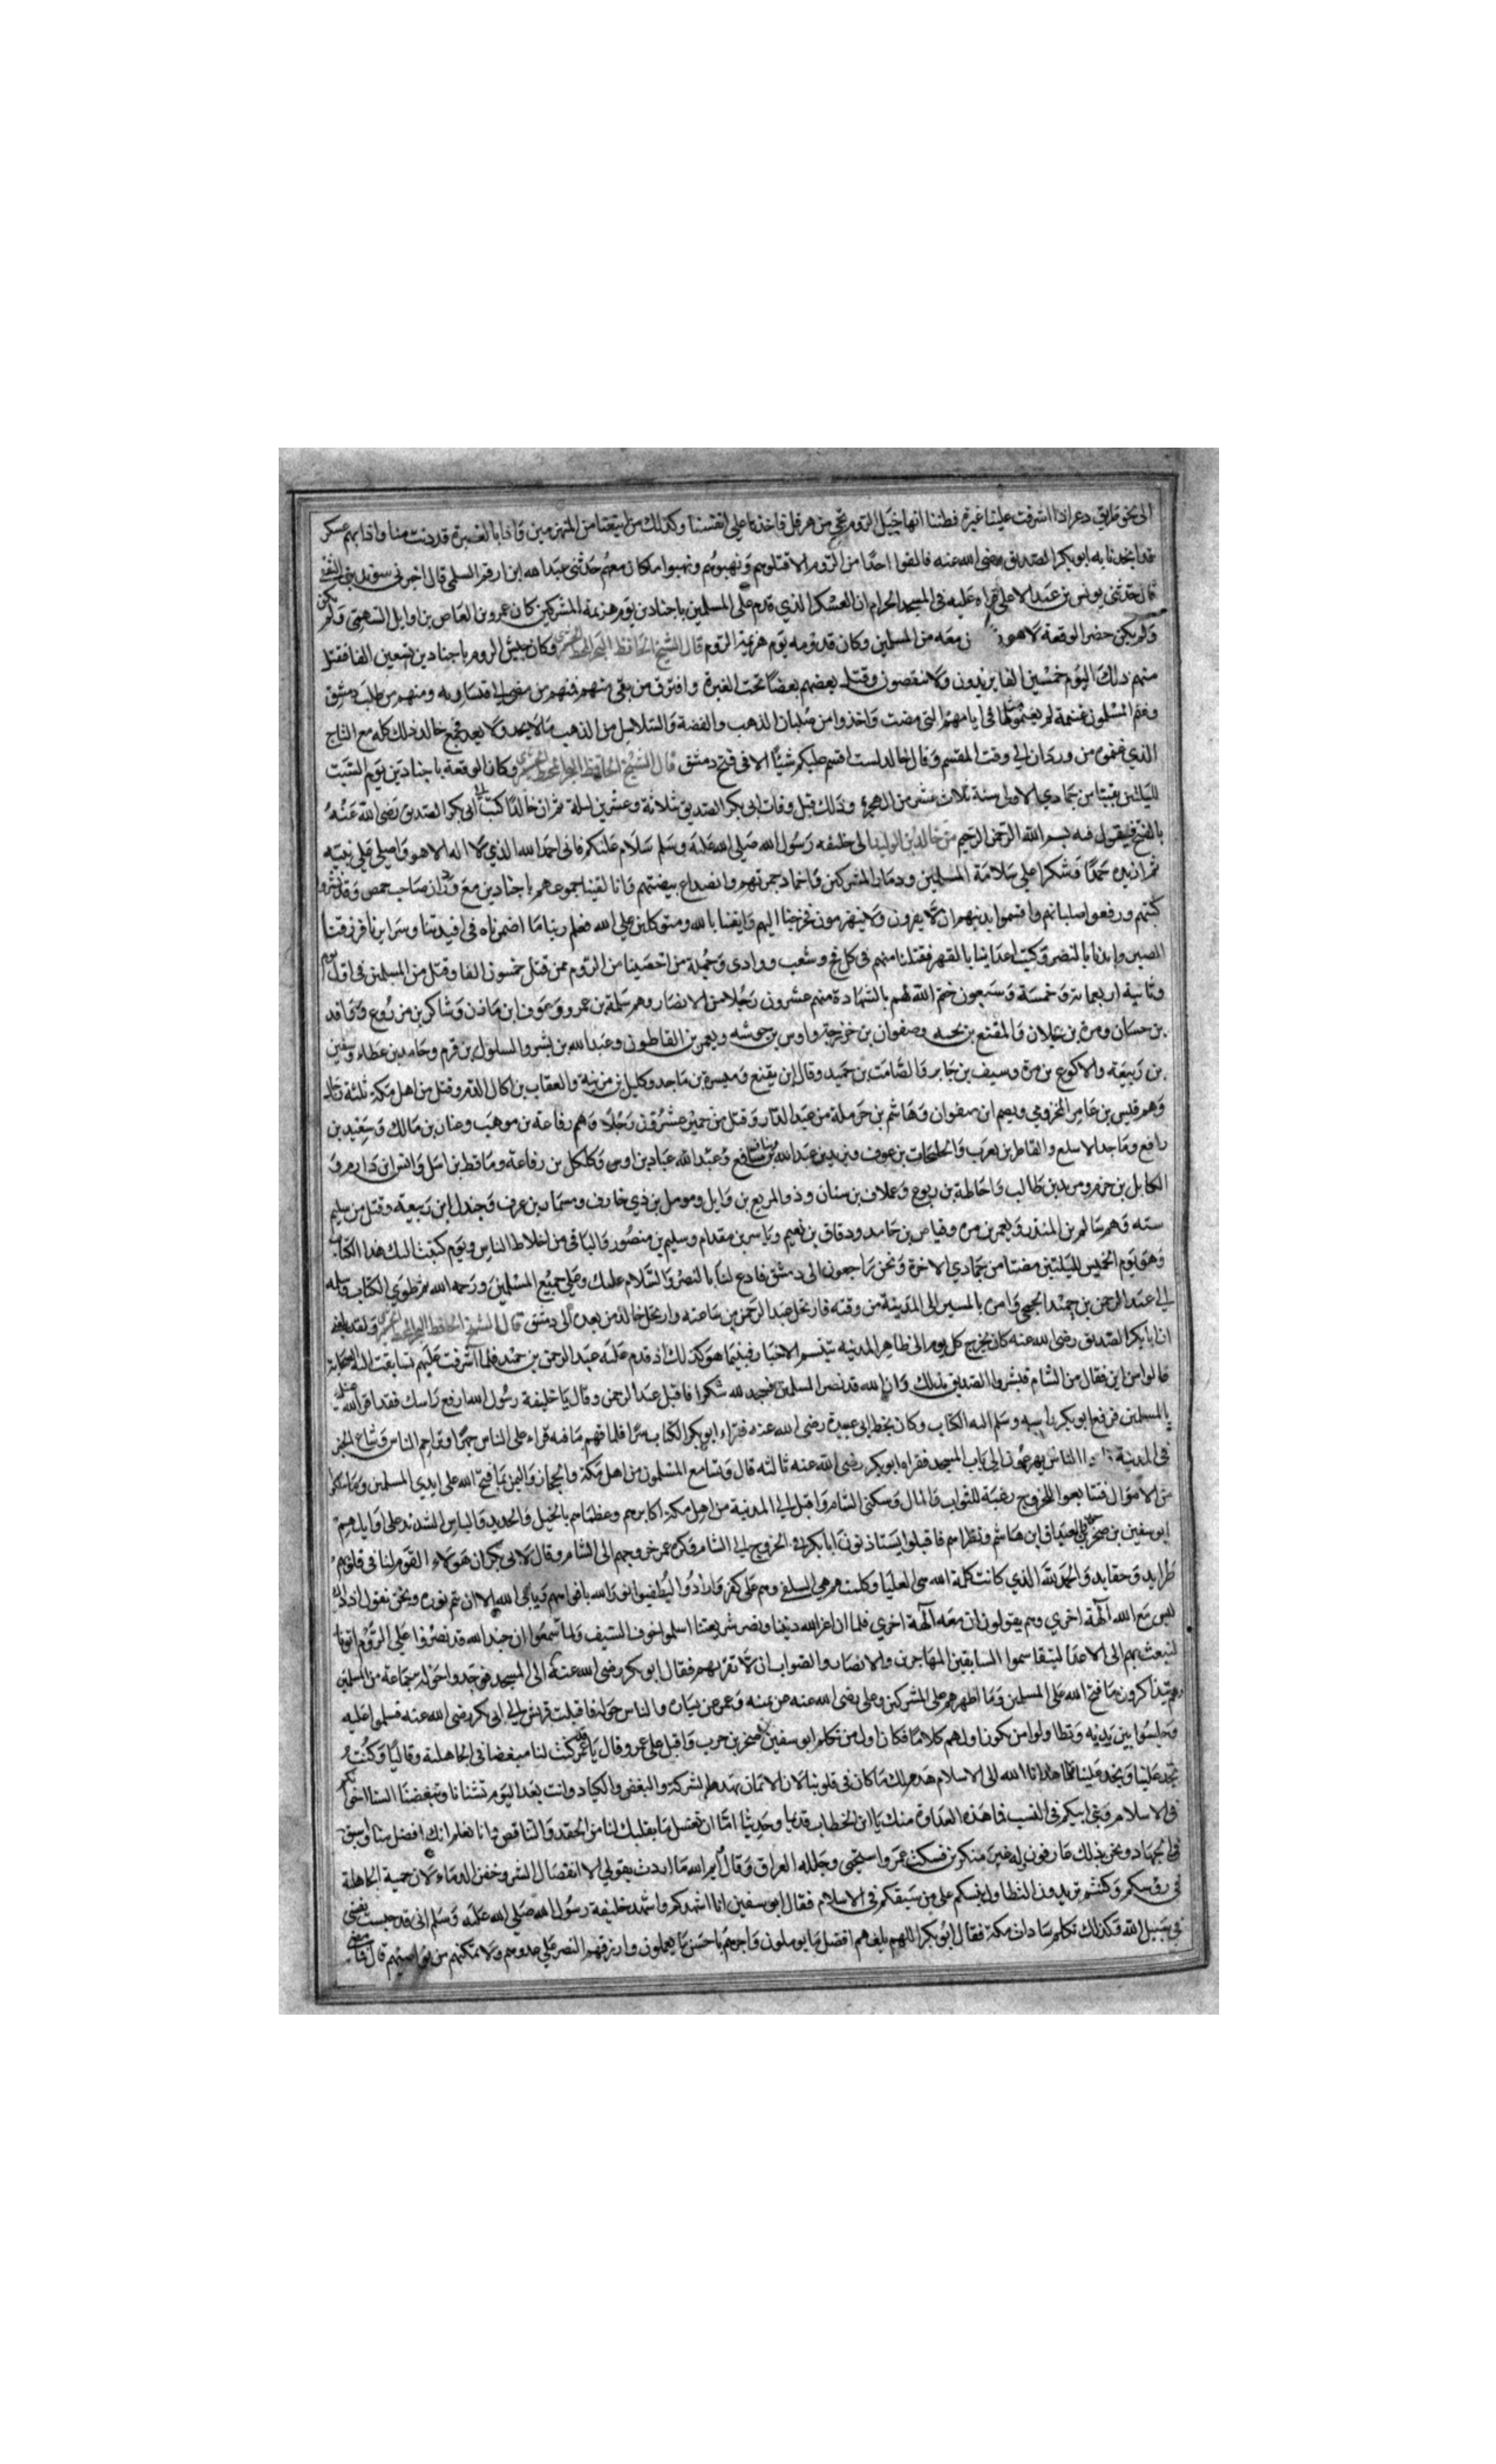 الى نحن طريق دعر اذا اشرفت علينا غبرة فظننا انها خيل الروم نجي من هرقل فاخذنا على انفسنا وكذلك من اتبعنا من المنهزمين فاذا بالغبرة قد دنت منا واذا بهم عسكر
قد انجدنا به ابو بكر الصديق رضى الله عنه فالقوا احدًا من الروم الا قتلوهم ونهبوهم ونهبوا ما كان معهم حدثنى قال اخبرنى
قال حدثنى يونس بن عبد الاعلى قراه عليه فى المسجد الحرام ان العسكر الذي قدم على المسلمين باجنادين يوم هزيمة المشركين كان عمرو بن العاص بن وايل السهمى ولم
ولم يكن حضر الوقعة لاهو ن معه من المسلمين وكان قدومه يوم هزيمة الروم قال الشيخ الحافظ وكان جيش الروم باجنادين تسعين الفا فقتل
منهم ذلك اليوم خمسين الفا يزيدون ولا ينقصون وقتل بعضهم بعضًا تحت الغبرة وافترق من بقى منهم فمنهم من مضى الى قيساريه ومنهم من طلب دمشق
وغنم المسلمون غنيمة لم يغنموا مثلها فى ايامهم التى مضت واخذوا من صلبان الذهب والفضة والسلاسل من الذهب مالا يحد ولا يعد فجمع خالد ذلك كله مع التاج
الذي غنموه من وردان الى وقت المقسم وقال خالد لست اقسم عليكم شيئًا الا فى فتح دمشق قال الشيخ الحافظ وكان الوقعة باجنادين يوم السبت
لليلتين بقيتا من جمادي الاولى سنة ثلاث عشر من الهجرة وذلك قبل وفات ابى بكر الصديق بثلاثة وعشرين ليلة ثم ان خالدًا كتب الى ابى بكر الصديق رضى الله عنه
بالفتح فيقول فيه بسم الله الرحمن الرحيم من خالد بن الوليد الى خليفه رسول الله صلى الله عليه وسلم سلام عليكم فانى احمد الله الذي لا اله الا هو واصلى على نبيه
ثم ازيده حمدًا وشكرا على سلامة المسلمين ودمار المشركين واخماد جمرتهم وانصداع بيضتهم وانا لقينا جموعهم باجنادين مع وردان صاحب حمص وقد نشروا
كتبهم ورفعوا صلبانهم واقسموا بدينهم ان لا يفرون ولا ينهزمون فخرجنا اليهم وايقنا بالله ومتوكلين على الله فعلم ربنا ما اضمرناه فى افيدتنا وسرايرنا فرزقنا
الصبر وايدنا بالنصر وكبت اعداينا بالقهر فقتلنا منهم فى كل فج وشعب ووادى وجملة من احصينا من الروم ممن قتل خمسون الفا وقتل من المسلمين فى اول يوم
وثانيه اربعماية وخمسة وسبعون ختم الله لهم بالشهادة منهم عشرون رجلا من الانصار وهم سلمة بن عمرو وعوف ابن ماذن وشاكر بن
بن حسان ومرة بن عيلان والمقنع بن وصفوان بن خزرجة واوس بن ويعمر بن القاطون وعبد الله بن بشر والسلول بن قرم وحامد بن عطاء وسفين
بن ربيعة والاكوع بن مرة وسيف بن جابر والصامت بن حميد وميسرة بن ماجد وكليل بن والعقاب بن اكال وقتل من اهل مكة ثلثة
وهم قليس بن عامر المخزومي ان صفوان وهاشم بن حرملة من عبد الدار وقتل من حمير عشرون رجلا وهم رفاعة بن موهب وعنان بن مالك وسعيد بن
رافع وماجد الاسلع والقاطن بن يعرب بن عوف عبد الله بن نافع وعبد الله عباد بن اوس وكلكل بن رفاعة وماقط بن وانس ابن دارم و
الكابل بن حزم ومرثد بن طالب واحاطة بن ربوع وعملاف بن سنان وذو المربع بن وايل ومومل بن ذي خارف ومسمار بن عرف وجندل ابن ربيعة وقتل من سليم
سته وهم سالم بن المنذر ويعمر بن مرة وفياض بن حامد ودقاق بن نعيم وياسر بن مقدام وسليم بن منصور والباقى من اخلاط الناس ويوم كتبت اليك هذا الكتاب
وهو يوم الخميس لليلتين مضتا من جمادي الاخرة ونحن راجعون الى دمشق فادع لنا بالنصر والسلام عليك وعلى جميع المسلمين ورحمه الله ثم طوي الكتاب وسلمه
الى عبد الرحمن بن حميد الجمحى وامره بالمسير الى المدينة من وقته فارتحل عبد الرحمن بن من ساعته وارتحل خالد من بعده الى دمشق قال الشيخ الحافظ ولقد بلغنى
ان ابا بكر الصديق رضى الله عنه كان يخرج كل يوم الى ظاهر المدينه يتنسم الاخبار فبينما هو كذلك اذ قدم عليه عبد الرحمن بن حميد فلما اشرفت عليهم تسابقت اليه الصحابة
قالوا من اين فقال من الشام فبشروا الصديق بذلك وان الله قد نصر المسلمين فسجد لله شكرا فاقبل عبد الرحمن وقال يا خليفة رسول الله ارفع راسك فقد اقر الله عينك
بالمسلمين فرفع ابو بكر راسه وسلم اليه الكتاب وكان بخط ابى عبيدة رضى الله عنه فقراء ابو بكر الكتاب سرًا فلما فهم ما فيه قراء على الناس جهرًا وتزاحم الناس وشاع الخبر
فى المدينة الناس يهرعون الى باب المسجد فقراه ابو بكر رضى الله عنه ثالثه قال وتسامع المسلمون من اهل مكة والحجاز واليمن بما فتح الله على ايدي المسلمين وما ملكوا
من الاموال فتتابعوا للخروج رغبة للثواب والمال وسكنى الشام واقبل الى المدينة من اهل مكة اكابرهم وعظماهم بالخيل والحديد والباس الشديد على اوايلهم
ابو سفين بن صخر بن حرب والعيداق ابن هاشم ونظراهم فاقبلوا يستاذنون ابا بكر فى الخروج الى الشام فكره عمر خروجهم الى الشام وقال لابى بكر ان هولاء القوم لنا فى قلوبهم
طرايد وحقايد والحمد لله الذي كانت كلمة الله هى العليا وكلمتهم هى السفلى وهم على كفر وارادوا ليطفيوا نور الله بافواههم ويابى الله الا ان يتم نوره ونحن نقول اذ ذاك
ليس مع الله آلهة اخري وهم يقولون ان معه آلهة اخري فلما ان اعز الله ديننا ونصر شريعتنا اسلموا خوف السيف ولما سمعوا ان جند الله قد نصروا على الروم اتونا
لنبعث بهم الى الاعدا ليتقاسموا السابقين المهاجرين والانصار والصواب ان لا تقربهم فقال ابو بكر رضى الله عنه الى المسجد فوجدوا حوله جماعة من المسلمين
وهم يتذاكرون ما فتح الله على المسلمين وما اظهرهم على المشركين وعلى رضى الله عنه عن يمينه وعمر عن يساره والناس حوله فاقبلت قريش الى ابى بكر رضى الله عنه فسلموا عليه
وجلسوا بين يديه وتطاولوا من يكون اولهم كلامًا فكان اول من تكلم ابو سفين صخر بن حرب واقبل على عمر وقال يا عمر كنت لنا مبغضا فى الجاهلية وقاليًا وكنت
تجد علينا ونجد عليك فلما هدانا الله الى الاسلام هدم ذلك ما كان فى قلوبنا لان الايمان يهدم الشرك والبغض والكياد وانت بعد اليوم تشنانا وتبغضنا السنا اخوتكم
فى الاسلام وبنى ابيكم فى النسب فما هذه العداوة منك يا ابن الخطاب قديما وحديثا اما ان تغسل ما بقلبك لنا من الحقد والتناقص وانا نعلم انك افضل منا واسبق
فى الجهاد ونحن بذلك عارفون له غير منكرين فسكت عمر واستحى وجلله العراق وقال ايم الله ما اردت بقولي الا انفصال الشر وحقن الدماء لان حمية الجاهلية
فى روسكم وكنتم تريدون التطاول بنسبكم على من سبقكم فى الاسلام فقال ابو سفين انا اشهدكم واشهد خليفة رسول الله صلى الله عليه وسلم انى قد حبست نفسى
فى سبيل الله وكذلك تكلم سادات مكة فقال ابو بكر اللهم بلغهم افضل ما يوملون واجزهم باحسن ما يعملون وارزقهم النصر على عدوهم ولا تمكنهم من نواصيهم قال